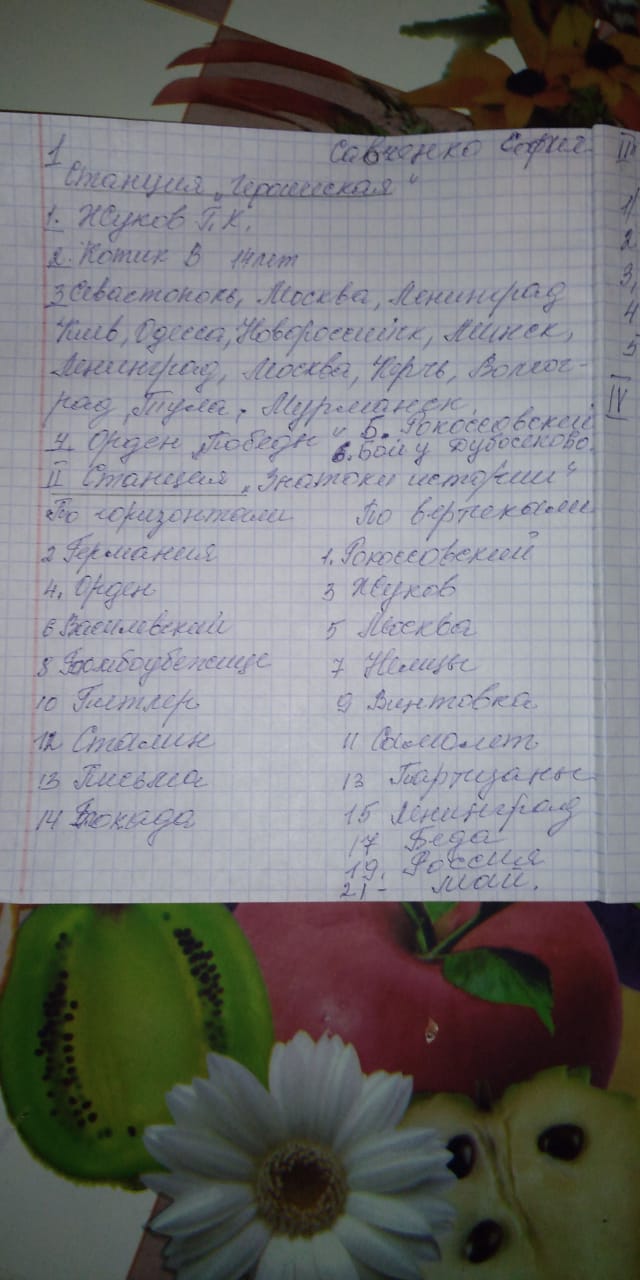 1 Савченко София
Станция „Героическая“
1. Жуков Г. К.
2. Котик В 14 лет
3 Севастополь, Москва, Ленинград
Киев, Одесса, Новороссийск, Минск,
Ленинград, Москва, Керчь, Волгог-
рад, Тула, Мурманск
4 Орден „Победы“ 5. Рокоссовский
6. Бой у Дубосеково.
II Станция „Знатоки истории“
По горизонтали По вертикали
2 Германия 1. Рокоссовский
4. Орден 3 Жуков
6 Василевский 5 Москва
8 Бомбоубежище 7 Немцы
10 Гитлер 9 Винтовка
12 Сталин 11 Самолеты
13 Письма 13 Партизаны
14 Блокада 15 Ленинград
17 Беда
19. Россия
21 - май.
III
1
2
3,
4
5
IV